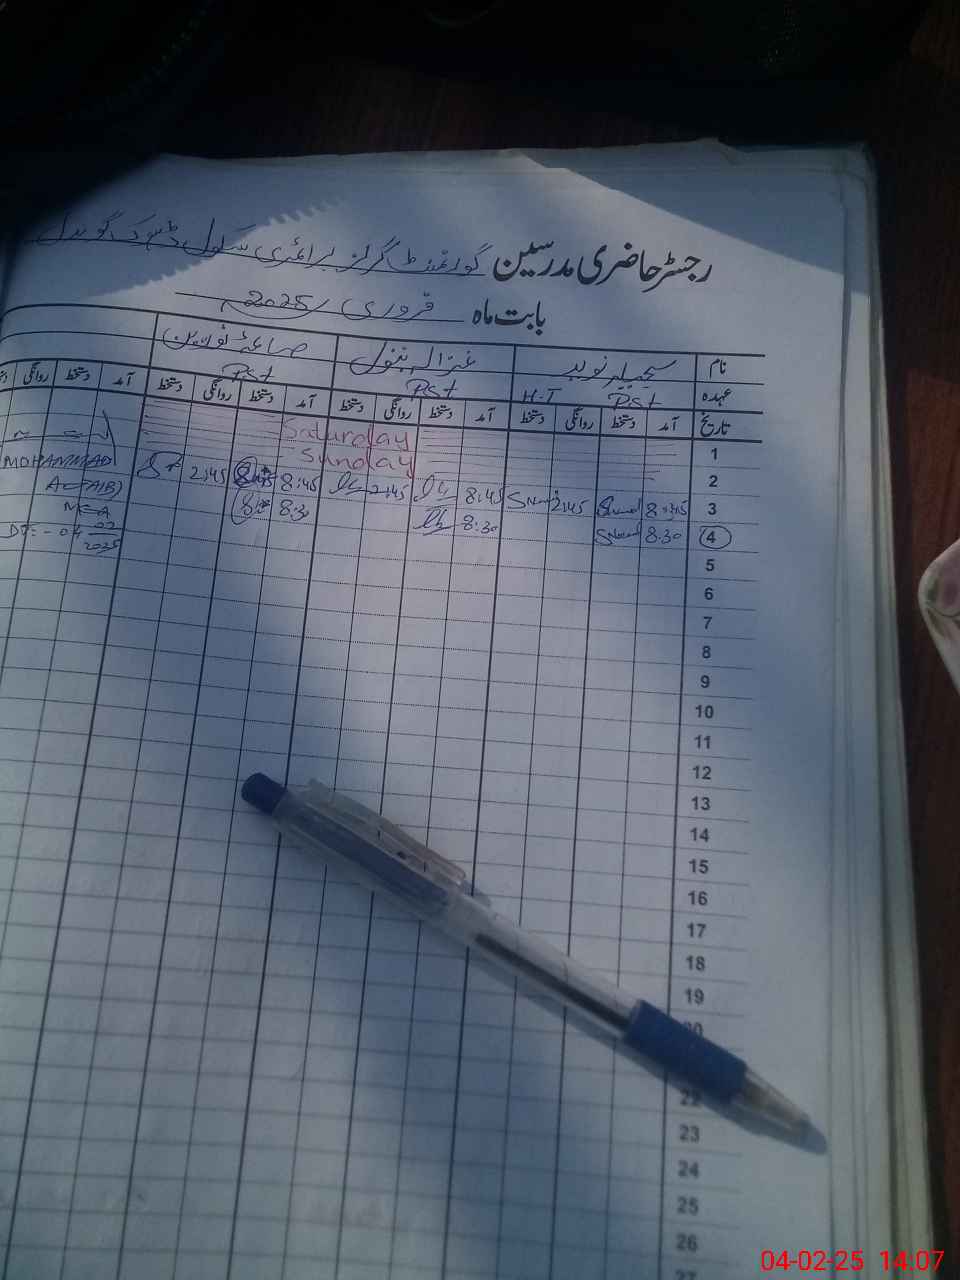 رجسٹر حاضری مدرسین گورنمنٹ گرلز پرائمری سکول ڈھوک گوندل
بابت ماہ فروری 2025
نام
غزالہ بتول
عہدہ PST H-T PST PST
تاریخ آمد دستخط روانگی دستخط آمد دستخط روانگی دستخط آمد دستخط روانگی دستخط آمد دستخط روانگی
1 Saturday
2 Sunday
3 8:45 2:45 8:45 2:45 8:45 2:45
4 8:30 8:30 8:30
MOHAMMAD
MEA
DT:- 04-02-2025
5
6
7
8
9
10
11
12
13
14
15
16
17
18
19
20
22
23
24
25
26
27
04-02-25 14:07